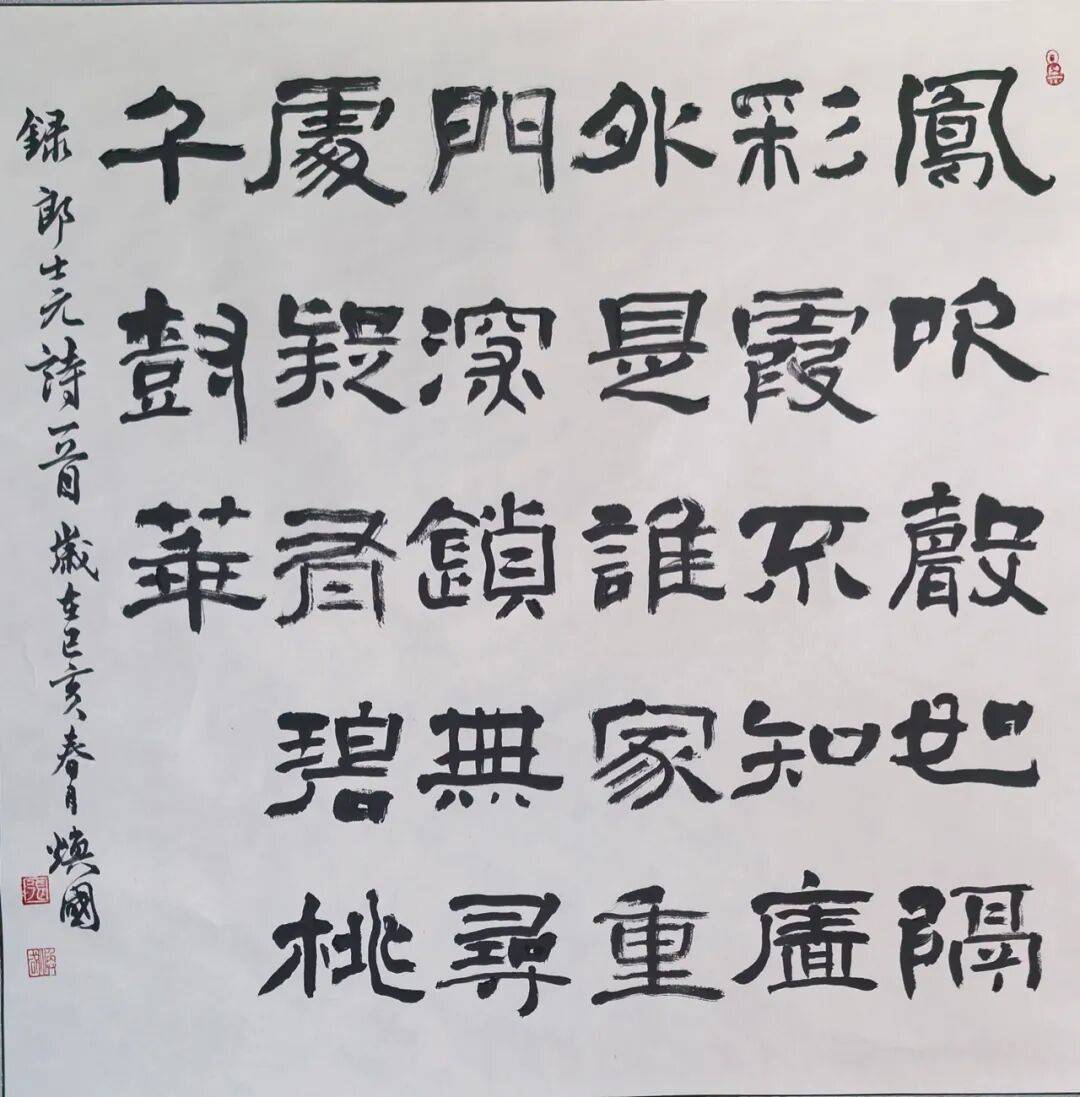 鳳吹聲如隔
彩霞不知廧
外是誰家重
門深鎖無尋
處疑有碧桃
千尌華
録郎士元詩一首歲在己亥春月煥國